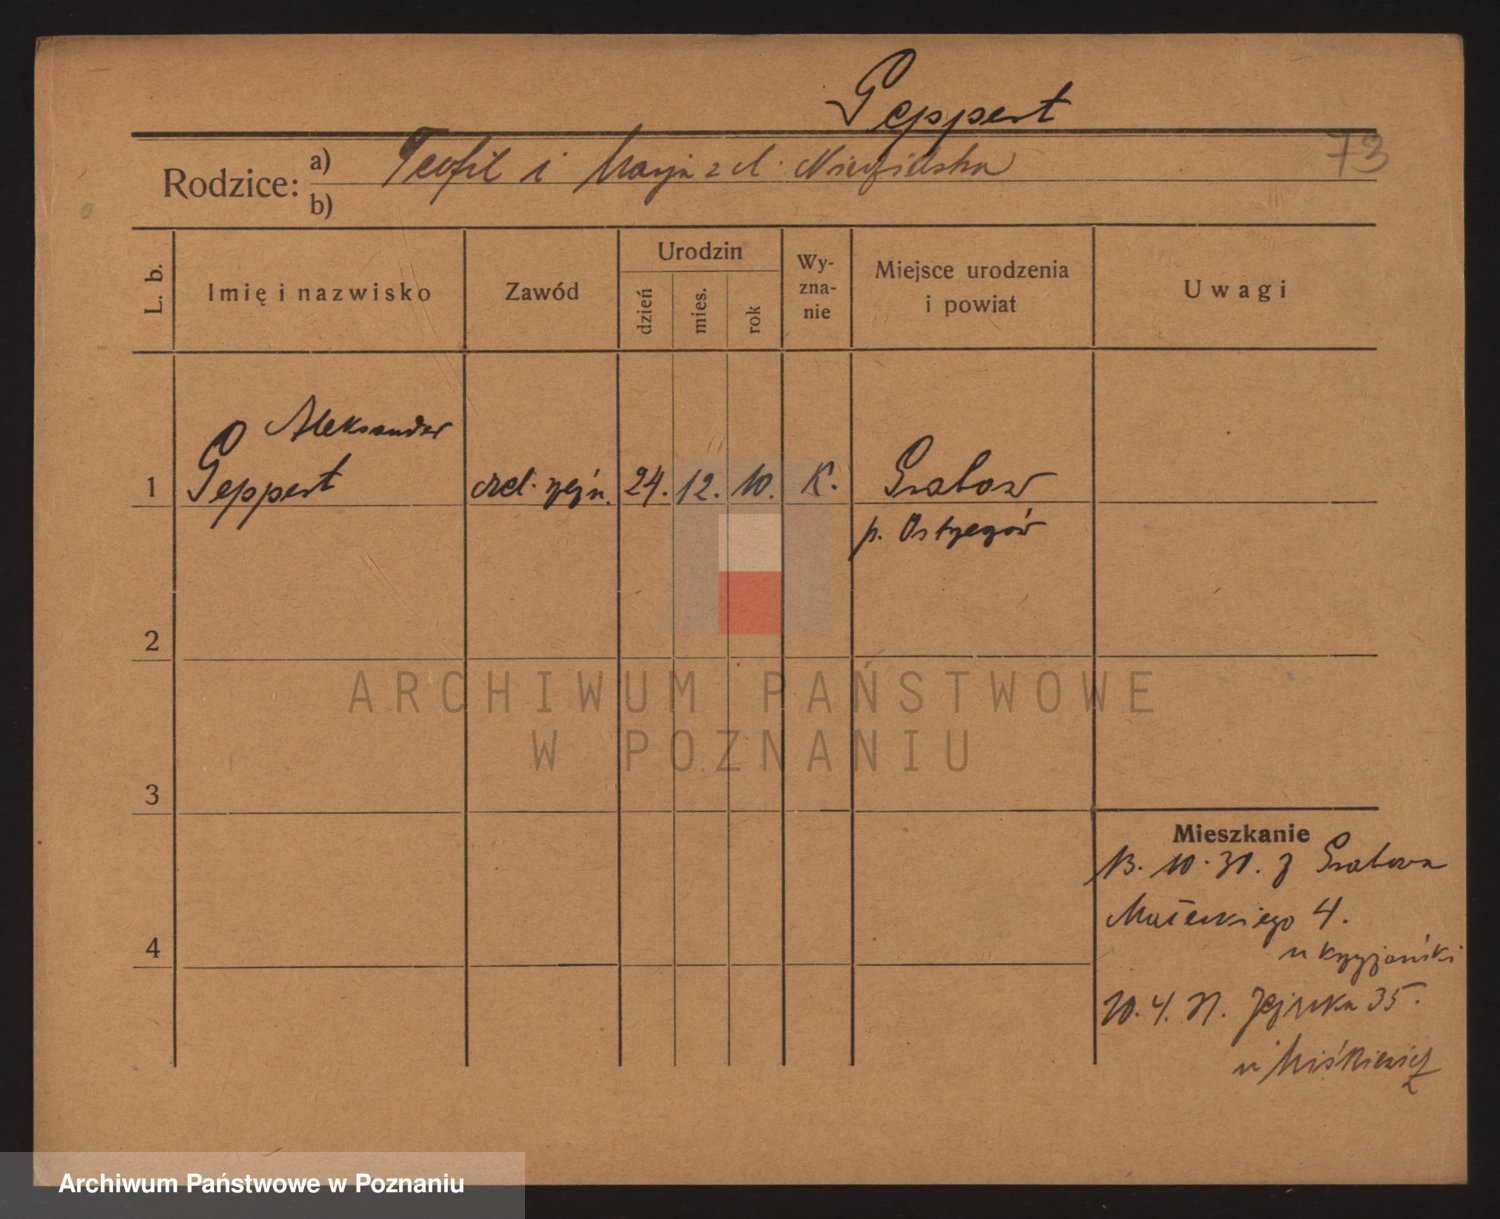 Geppert
73
Rodzice: a) Teofil i Marja z d. Niedzielska
b)
L. b.
Imię i nazwisko
Zawód
Urodzin
dzień
mies.
rok
Wy-
zna-
nie
Miejsce urodzenia
i powiat
Uwagi
Aleksander
1 Geppert czel. rzeźn. 24. 12. 10. K. Grabow
p. Ostrzeszów
2
3
4
Mieszkanie
13. 10. 30. z Grabowa
Małeckiego 4.
u
20. 4. 31. 35.
u Miśkiewicz
ARCHIWUM PAŃSTWOWE
W POZNANIU
Archiwum Państwowe w Poznaniu